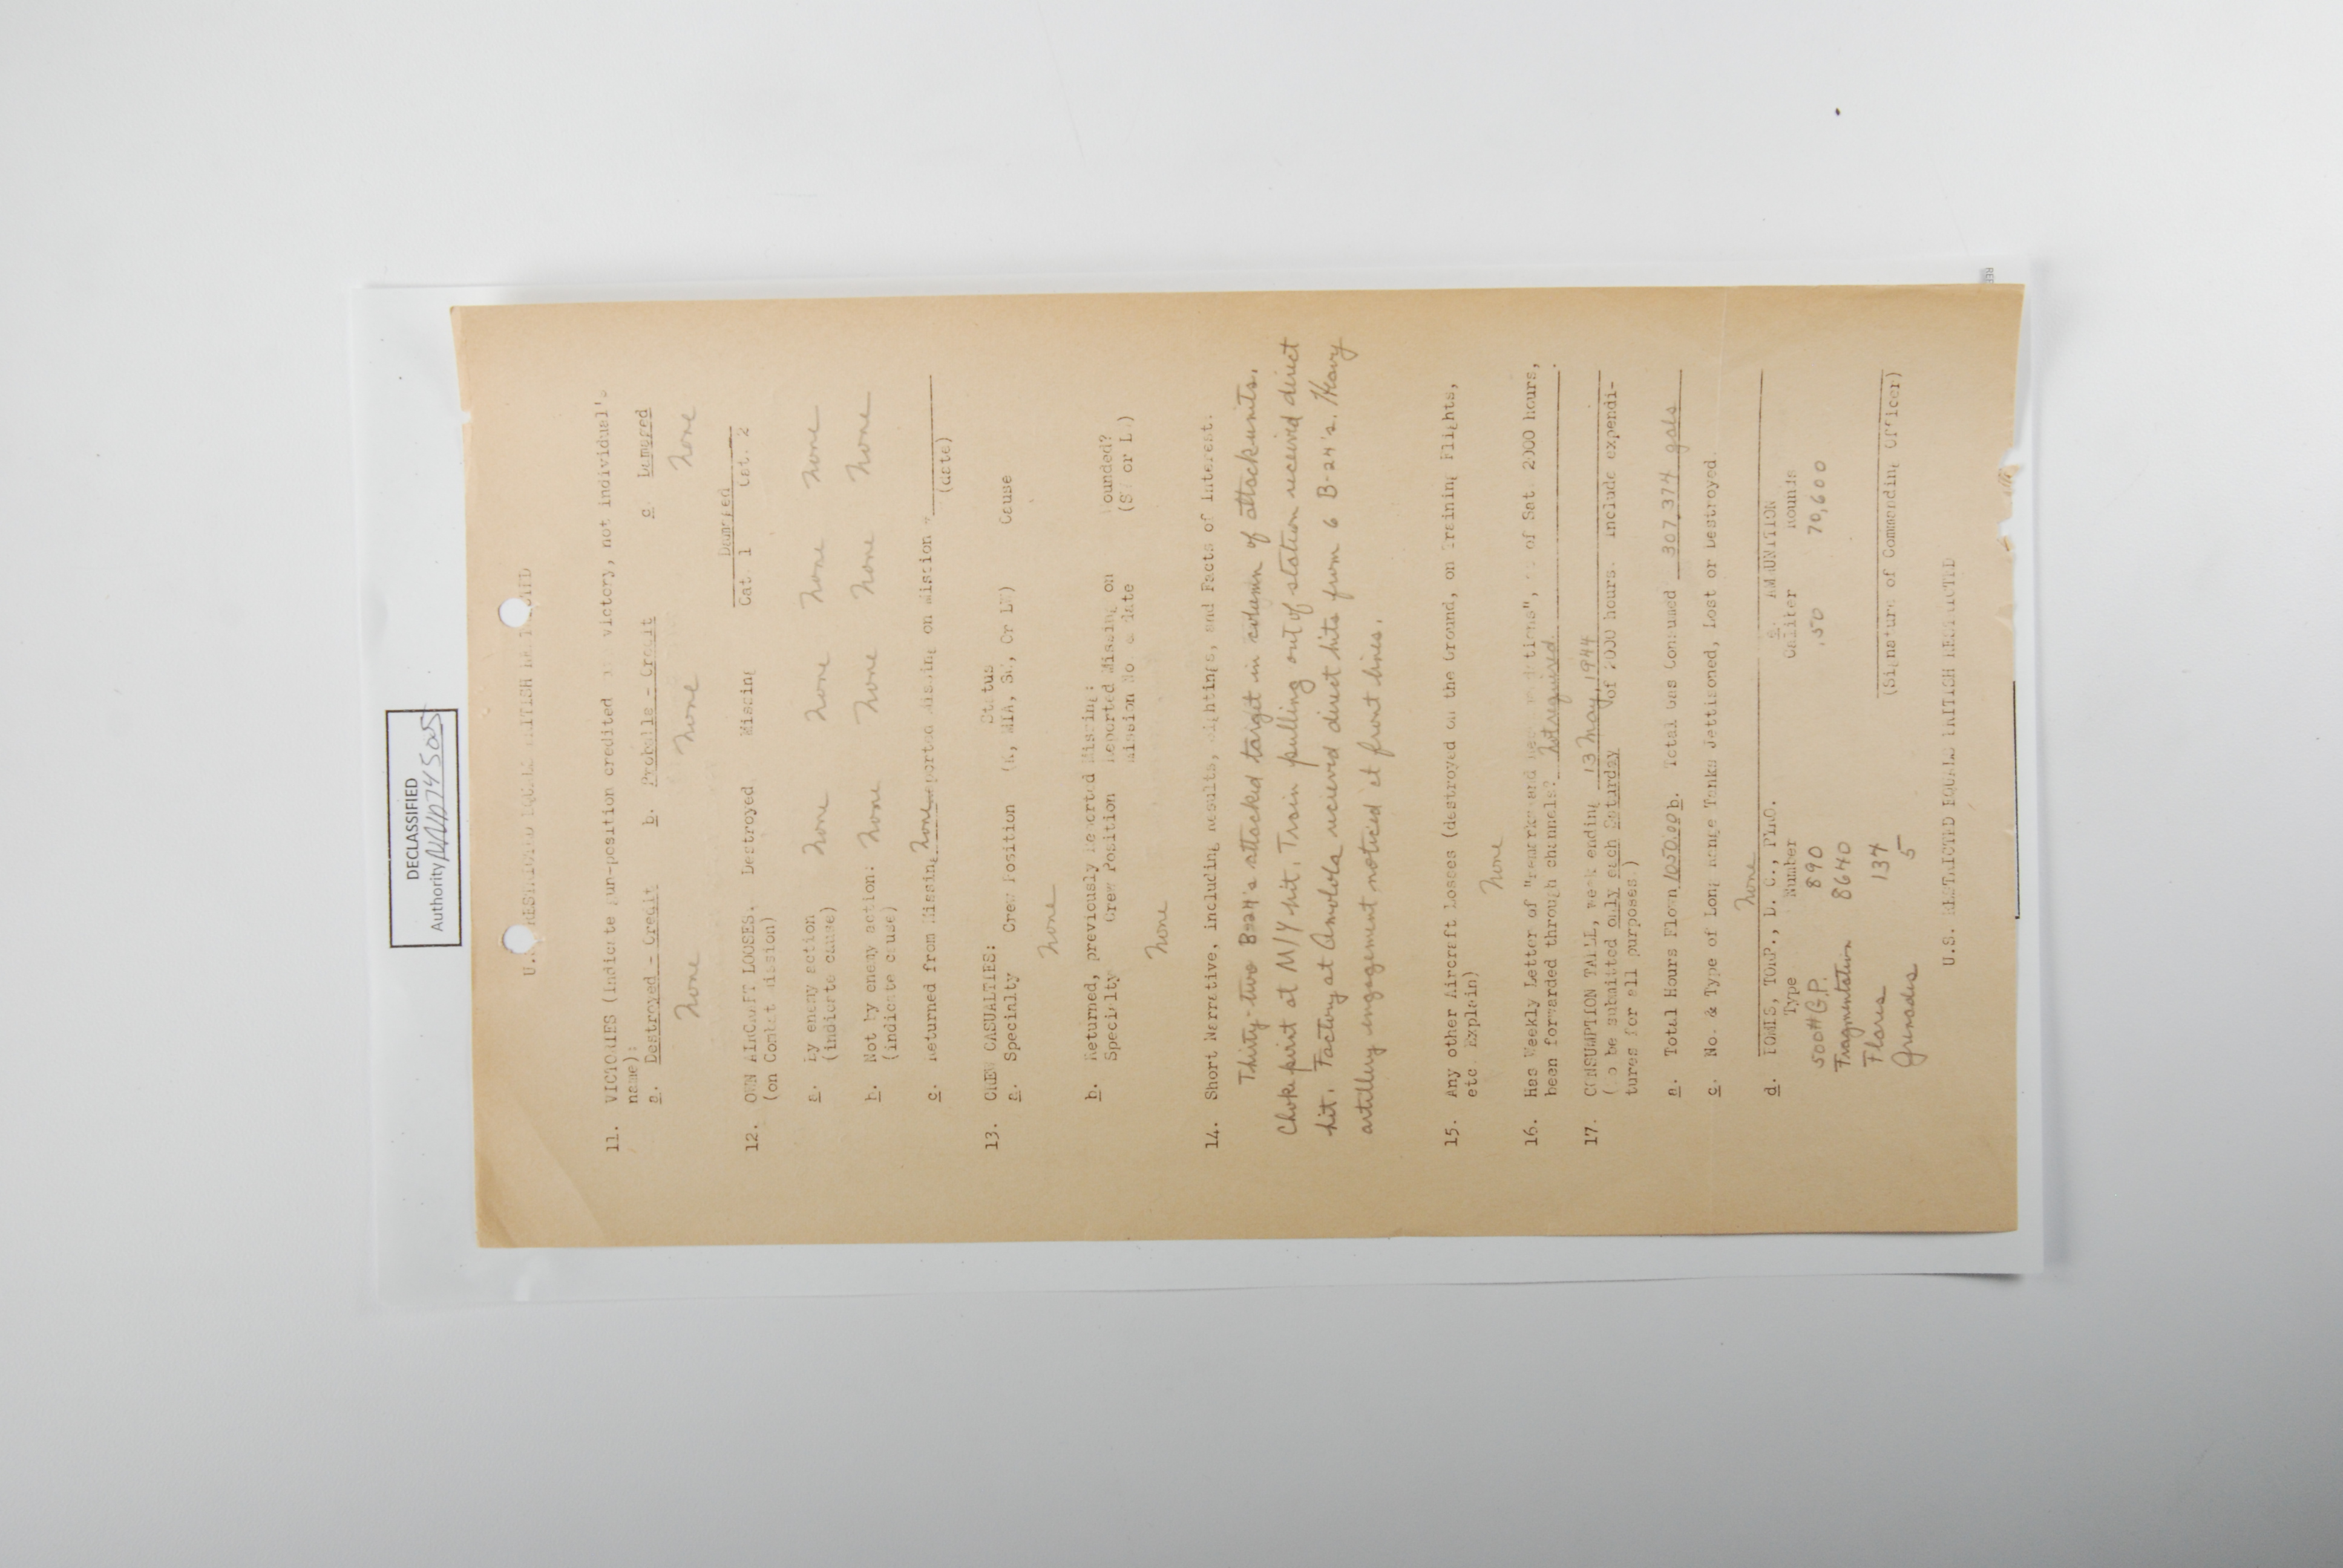 DECLASSIFIED
Authority NND745005
11. VICTORIES (Indicate gun-position credited victory, not individual's
name):
a. Destroyed - Credit b. Probable - Credit c. Damaged
None None None
Damaged
12. OWN AIRCRAFT LOOSES. Destroyed Missing Cat. 1 Cat. 2
(on Combat Mission)
a. By enemy action None None None None
(indicate cause)
b. Not by enemy action: None None None None
(indicate cause)
c. Returned from Missing, None reported missing on mission
(date)
13. CREW CASUALTIES: Status
a. Specialty Crew Position (K, MIA, SW, Or LW) Cause
None
b. Returned, previously Reported Missing:
Specialty Crew Position Reported Missing on Wounded?
Mission No. & date (SW or LW)
None
14. Short Narrative, including results, sightings, and Facts of Interest.
Thirty-two B-24's attacked target in column of attack units.
Choke point at M/Y hit. Train pulling out of station received direct
hit. Factory at Amolola recieved direct hits from 6 B-24's. Heavy
artillery engagement noticed at front lines.
15. Any other Aircraft Losses (destroyed on the Ground, on Training Flights,
etc. Explain)
None
16. Has Weekly Letter of "Remarks and", as of Sat. 2000 hours,
been forwarded through channels? Not required.
17. CONSUMPTION TABLE, week ending 13 May, 1944
(To be submitted only each Saturday of 2000 hours. include expendi-
tures for all purposes.)
a. Total Hours Flown 1050:00 b. Total Gas Consumed 307,374 gals
c. No. & Type of Long Range Tanks Jettisoned, Lost or Destroyed.
None
d. BOMBS, TORP., D. C., PYRO. e. AMMUNITION
Type Number Caliber Rounds
500# G.P. 890 .50 70,600
Fragmentation 8640
Flares 134
Grenades 5
(Signature of Commanding Officer)
U.S. RESTRICTED EQUALS BRITISH RESTRICTED